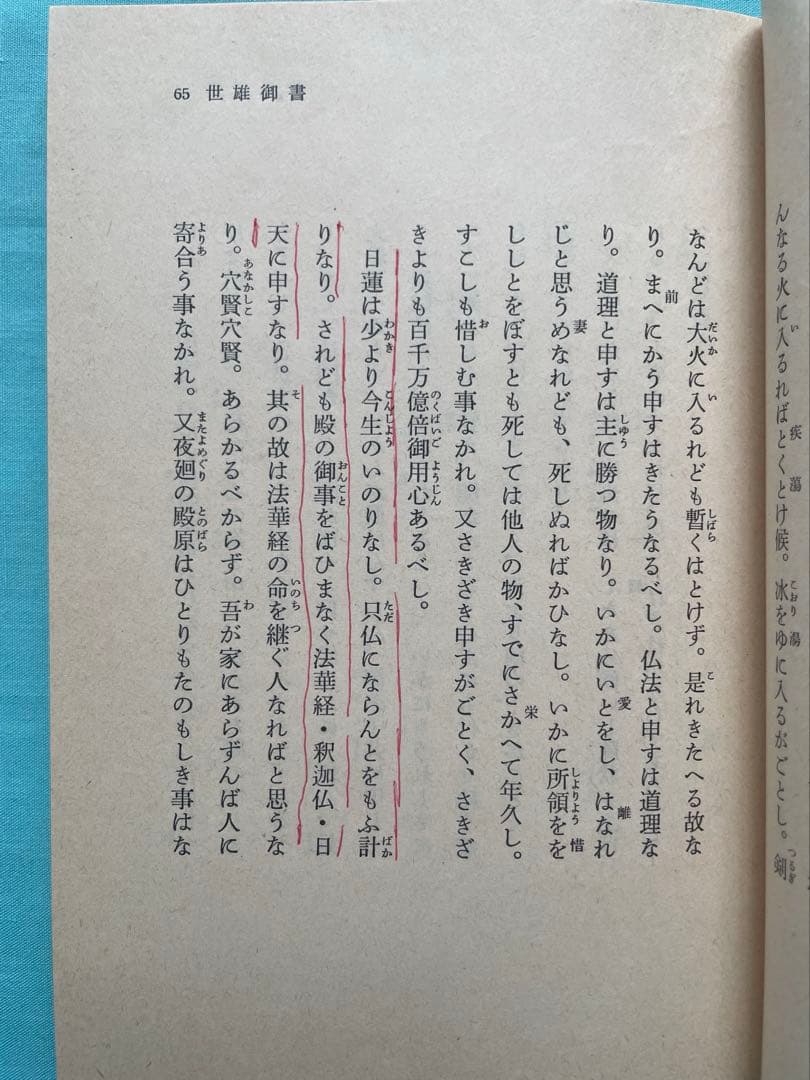 んなる火に入るればとくとけ候。冰をゆに入るがごとし。剣
65 世雄御書
なんどは大火に入るれども暫くはとけず。是れきたへる故な
り。まへにかう申すはきたうなるべし。仏法と申すは道理な
り。道理と申すは主に勝つ物なり。いかにいとをし、はなれ
じと思うめなれども、死しぬればかひなし。いかに所領をを
ししとをぼすとも死しては他人の物、すでにさかへて年久し。
すこしも惜しむ事なかれ。又さきざき申すがごとく、さきざ
きよりも百千万億倍御用心あるべし。
日蓮は少より今生のいのりなし。只仏にならんとをもふ計
りなり。されども殿の御事をばひまなく法華経・釈迦仏・日
天に申すなり。其の故は法華経の命を継ぐ人なればと思うな
り。穴賢穴賢。あらかるべからず。吾が家にあらずんば人に
寄合う事なかれ。又夜廻の殿原はひとりもたのもしき事はな